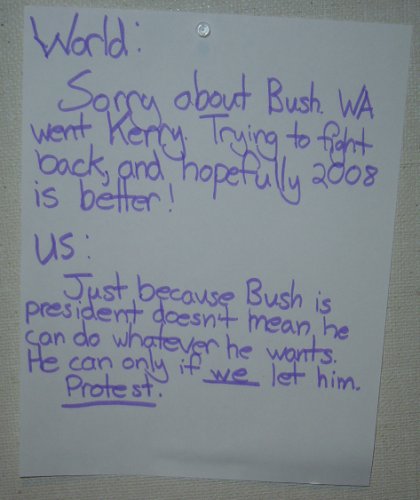 World:
Sorry about Bush. WA
went Kerry. Trying to fight
back, and hopefully 2008
is better!
US:
Just because Bush is
president doesn't mean he
can do whatever he wants.
He can only if we let him.
Protest.